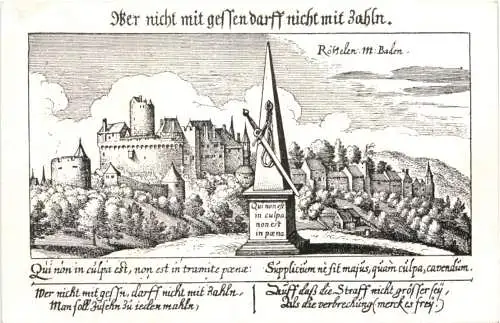 Wer nicht mit gessen darff nicht mit Zahln.
Röttelen. M: Baden.
Qui non est
in culpa
non est
in pæna
Qui non in culpa est, non est in tramite pænæ:
Supplicium ne sit majus, quam culpa, cavendum.
Wer nicht mit gessn, darff nicht mit Zahln,
Man soll Zusehn Zu ieden mahln,
Auff daß die Straff nicht grösser sey,
Als die verbrechung (merck es frey.)